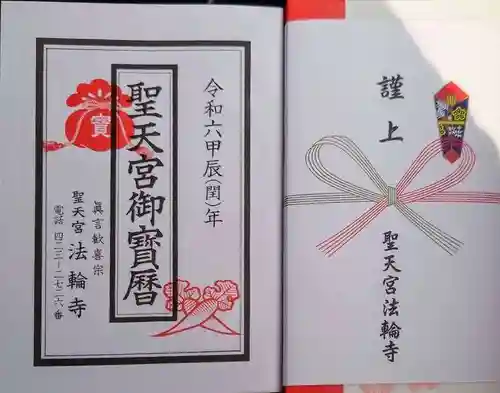 令和六甲辰(閏)年
聖天宮御寶暦
寶
眞言歓喜宗
聖天宮法輪寺
電話 四二三-二七二六番
謹上
聖天宮法輪寺